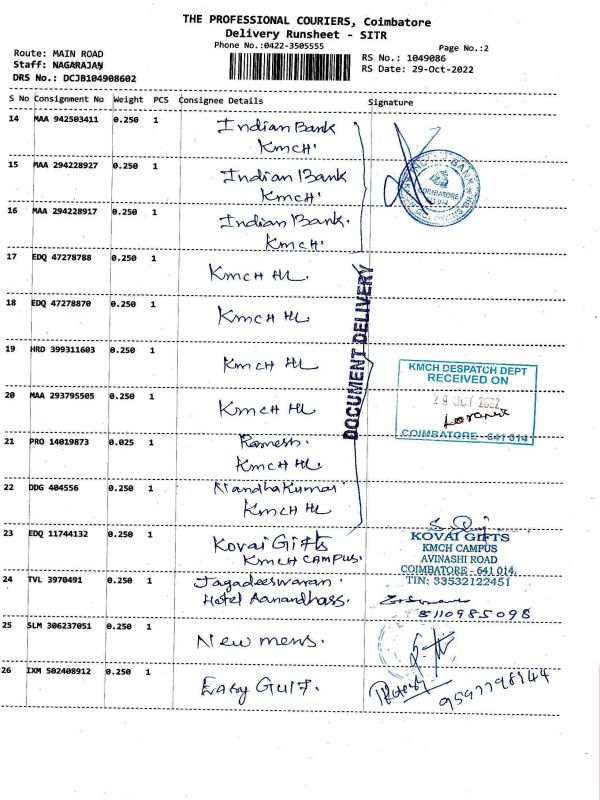 THE PROFESSIONAL COURIERS, Coimbatore
Delivery Runsheet - SITR
Phone No.:0422-3505555
Page No.:2
Route: MAIN ROAD
Staff: NAGARAJAN
DRS No.: DCJB104908602
RS No.: 1049086
RS Date: 29-Oct-2022
S No Consignment No Weight PCS Consignee Details Signature
14 MAA 942503411 0.250 1 Indian Bank
KMCH.
15 MAA 294228927 0.250 1 Indian Bank
KMCH.
16 MAA 294228917 0.250 1 Indian Bank.
KMCH.
COIMBATORE
17 EDQ 47278788 0.250 1 KMCH HL.
18 EDQ 47278870 0.250 1 KMCH HL.
19 HRD 399311603 0.250 1 KMCH HL
20 MAA 293795505 0.250 1 KMCH HL
DOCUMENT DELIVERY
KMCH DESPATCH DEPT
RECEIVED ON
29 OCT 2022
COIMBATORE - 641 014
21 PRO 14019873 0.025 1 Ramesh.
KMCH HL
22 DDG 404556 0.250 1 Nandhakumar
KMCH HL
23 EDQ 11744132 0.250 1 Kovai Gifts
KMCH CAMPUS.
KOVAI GIFTS
KMCH CAMPUS
AVINASHI ROAD
COIMBATORE - 641 014.
TIN: 33532122451
24 TVL 3970491 0.250 1 Jagadeeswaran.
Hotel Aanandhass.
8110985098
25 SLM 306237051 0.250 1 New mens.
26 IXM 502408912 0.250 1 Easy Guif.